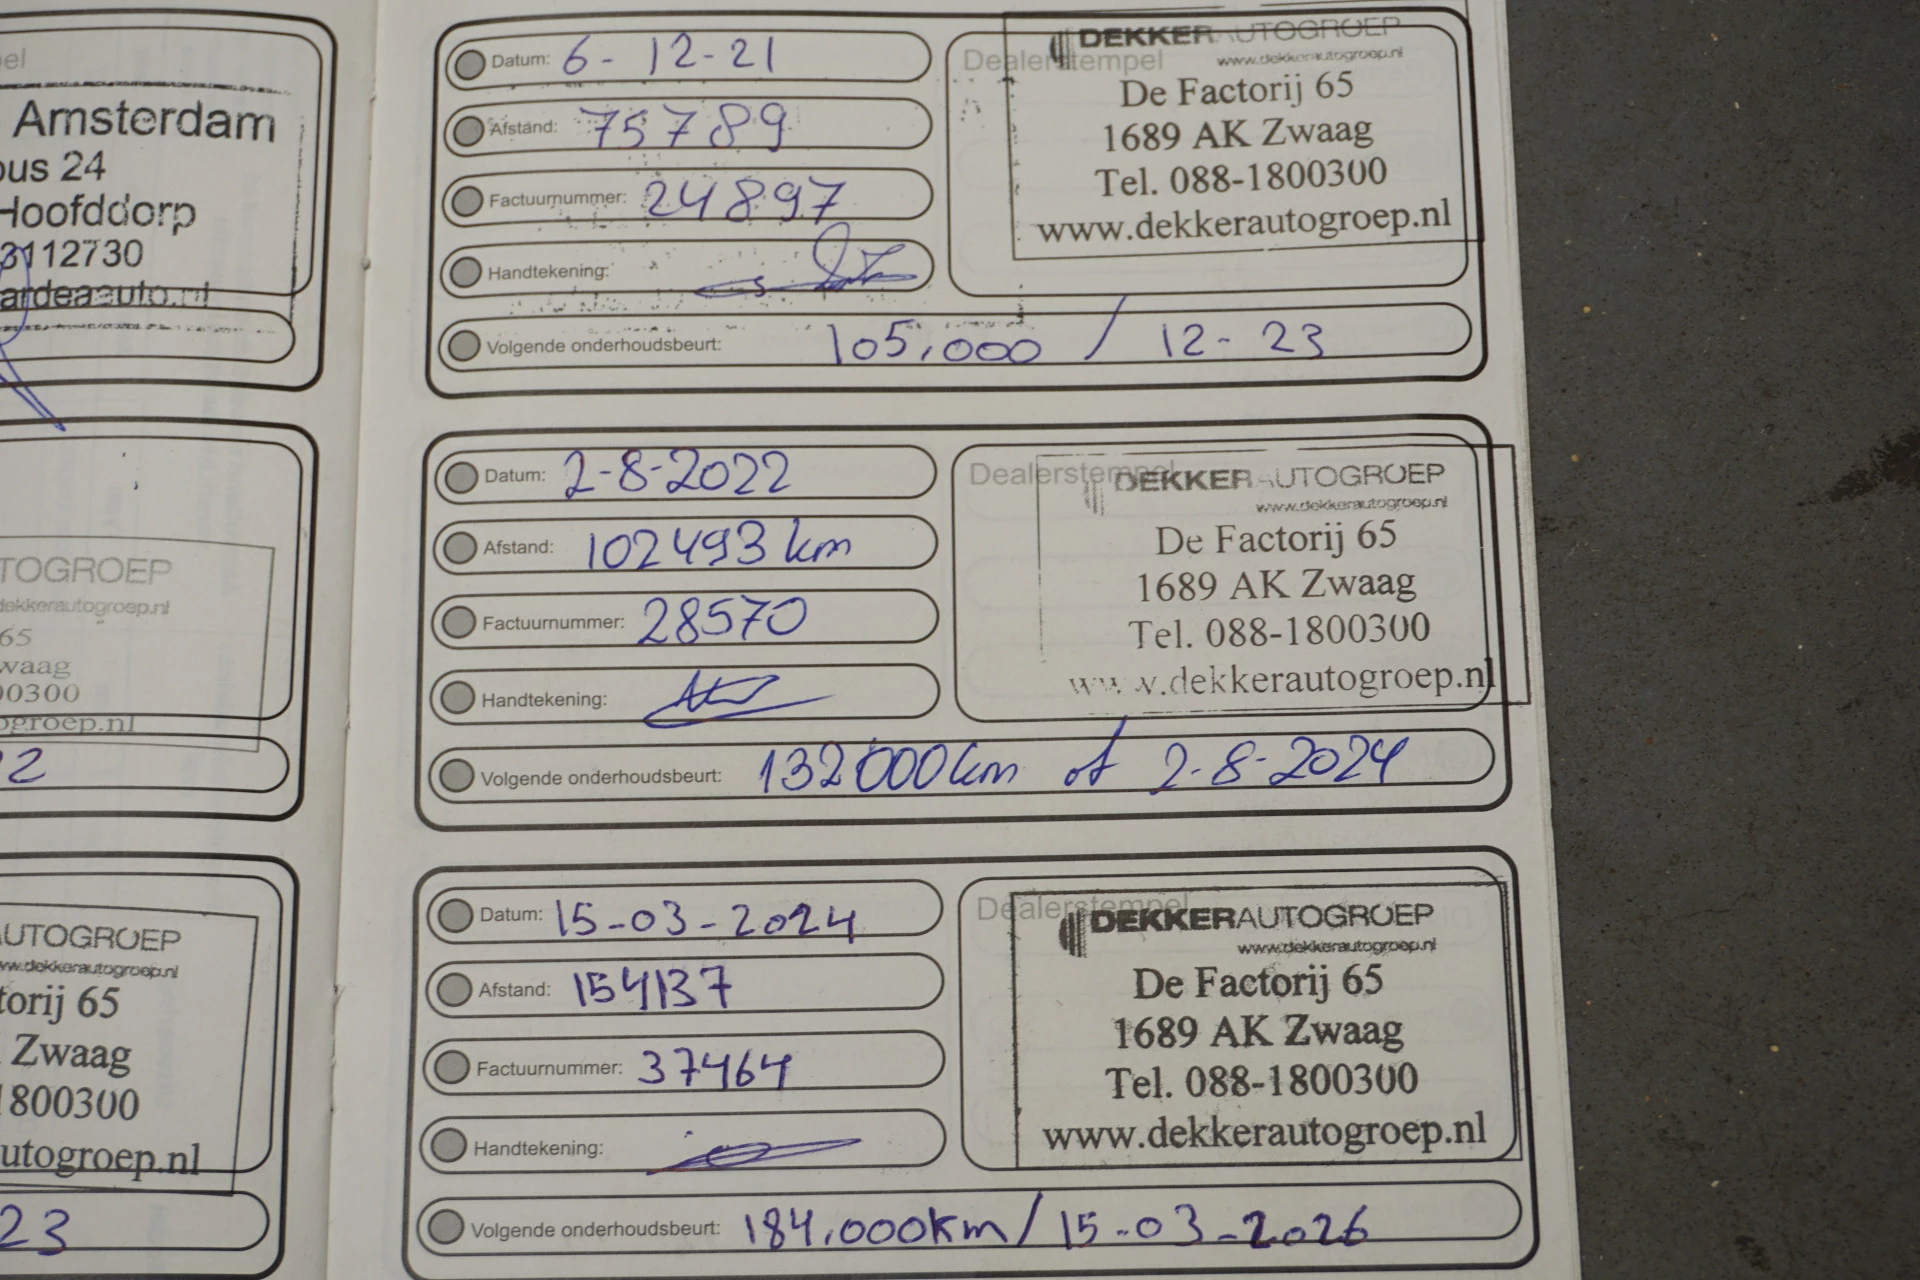 pel
Amsterdam
24
Hoofddorp
3112730
ardeaauto.nl
TOGROEP
dekkerautogroep.nl
65
waag
00300
ogroep.nl
2
AUTOGROEP
www.dekkerautogroep.nl
torij 65
Zwaag
1800300
utogroep.nl
23
Datum: 6-12-21
Afstand: 75789
Factuurnummer: 24897
Handtekening:
Volgende onderhoudsbeurt: 105.000 / 12-23
Dealerstempel
DEKKERAUTOGROEP
www.dekkerautogroep.nl
De Factorij 65
1689 AK Zwaag
Tel. 088-1800300
www.dekkerautogroep.nl
Datum: 2-8-2022
Afstand: 102493 km
Factuurnummer: 28570
Handtekening:
Volgende onderhoudsbeurt: 132000km of 2-8-2024
Dealerstempel
DEKKERAUTOGROEP
www.dekkerautogroep.nl
De Factorij 65
1689 AK Zwaag
Tel. 088-1800300
www.dekkerautogroep.nl
Datum: 15-03-2024
Afstand: 154137
Factuurnummer: 37464
Handtekening:
Volgende onderhoudsbeurt: 184.000km/15-03-2026
Dealerstempel
DEKKERAUTOGROEP
www.dekkerautogroep.nl
De Factorij 65
1689 AK Zwaag
Tel. 088-1800300
www.dekkerautogroep.nl